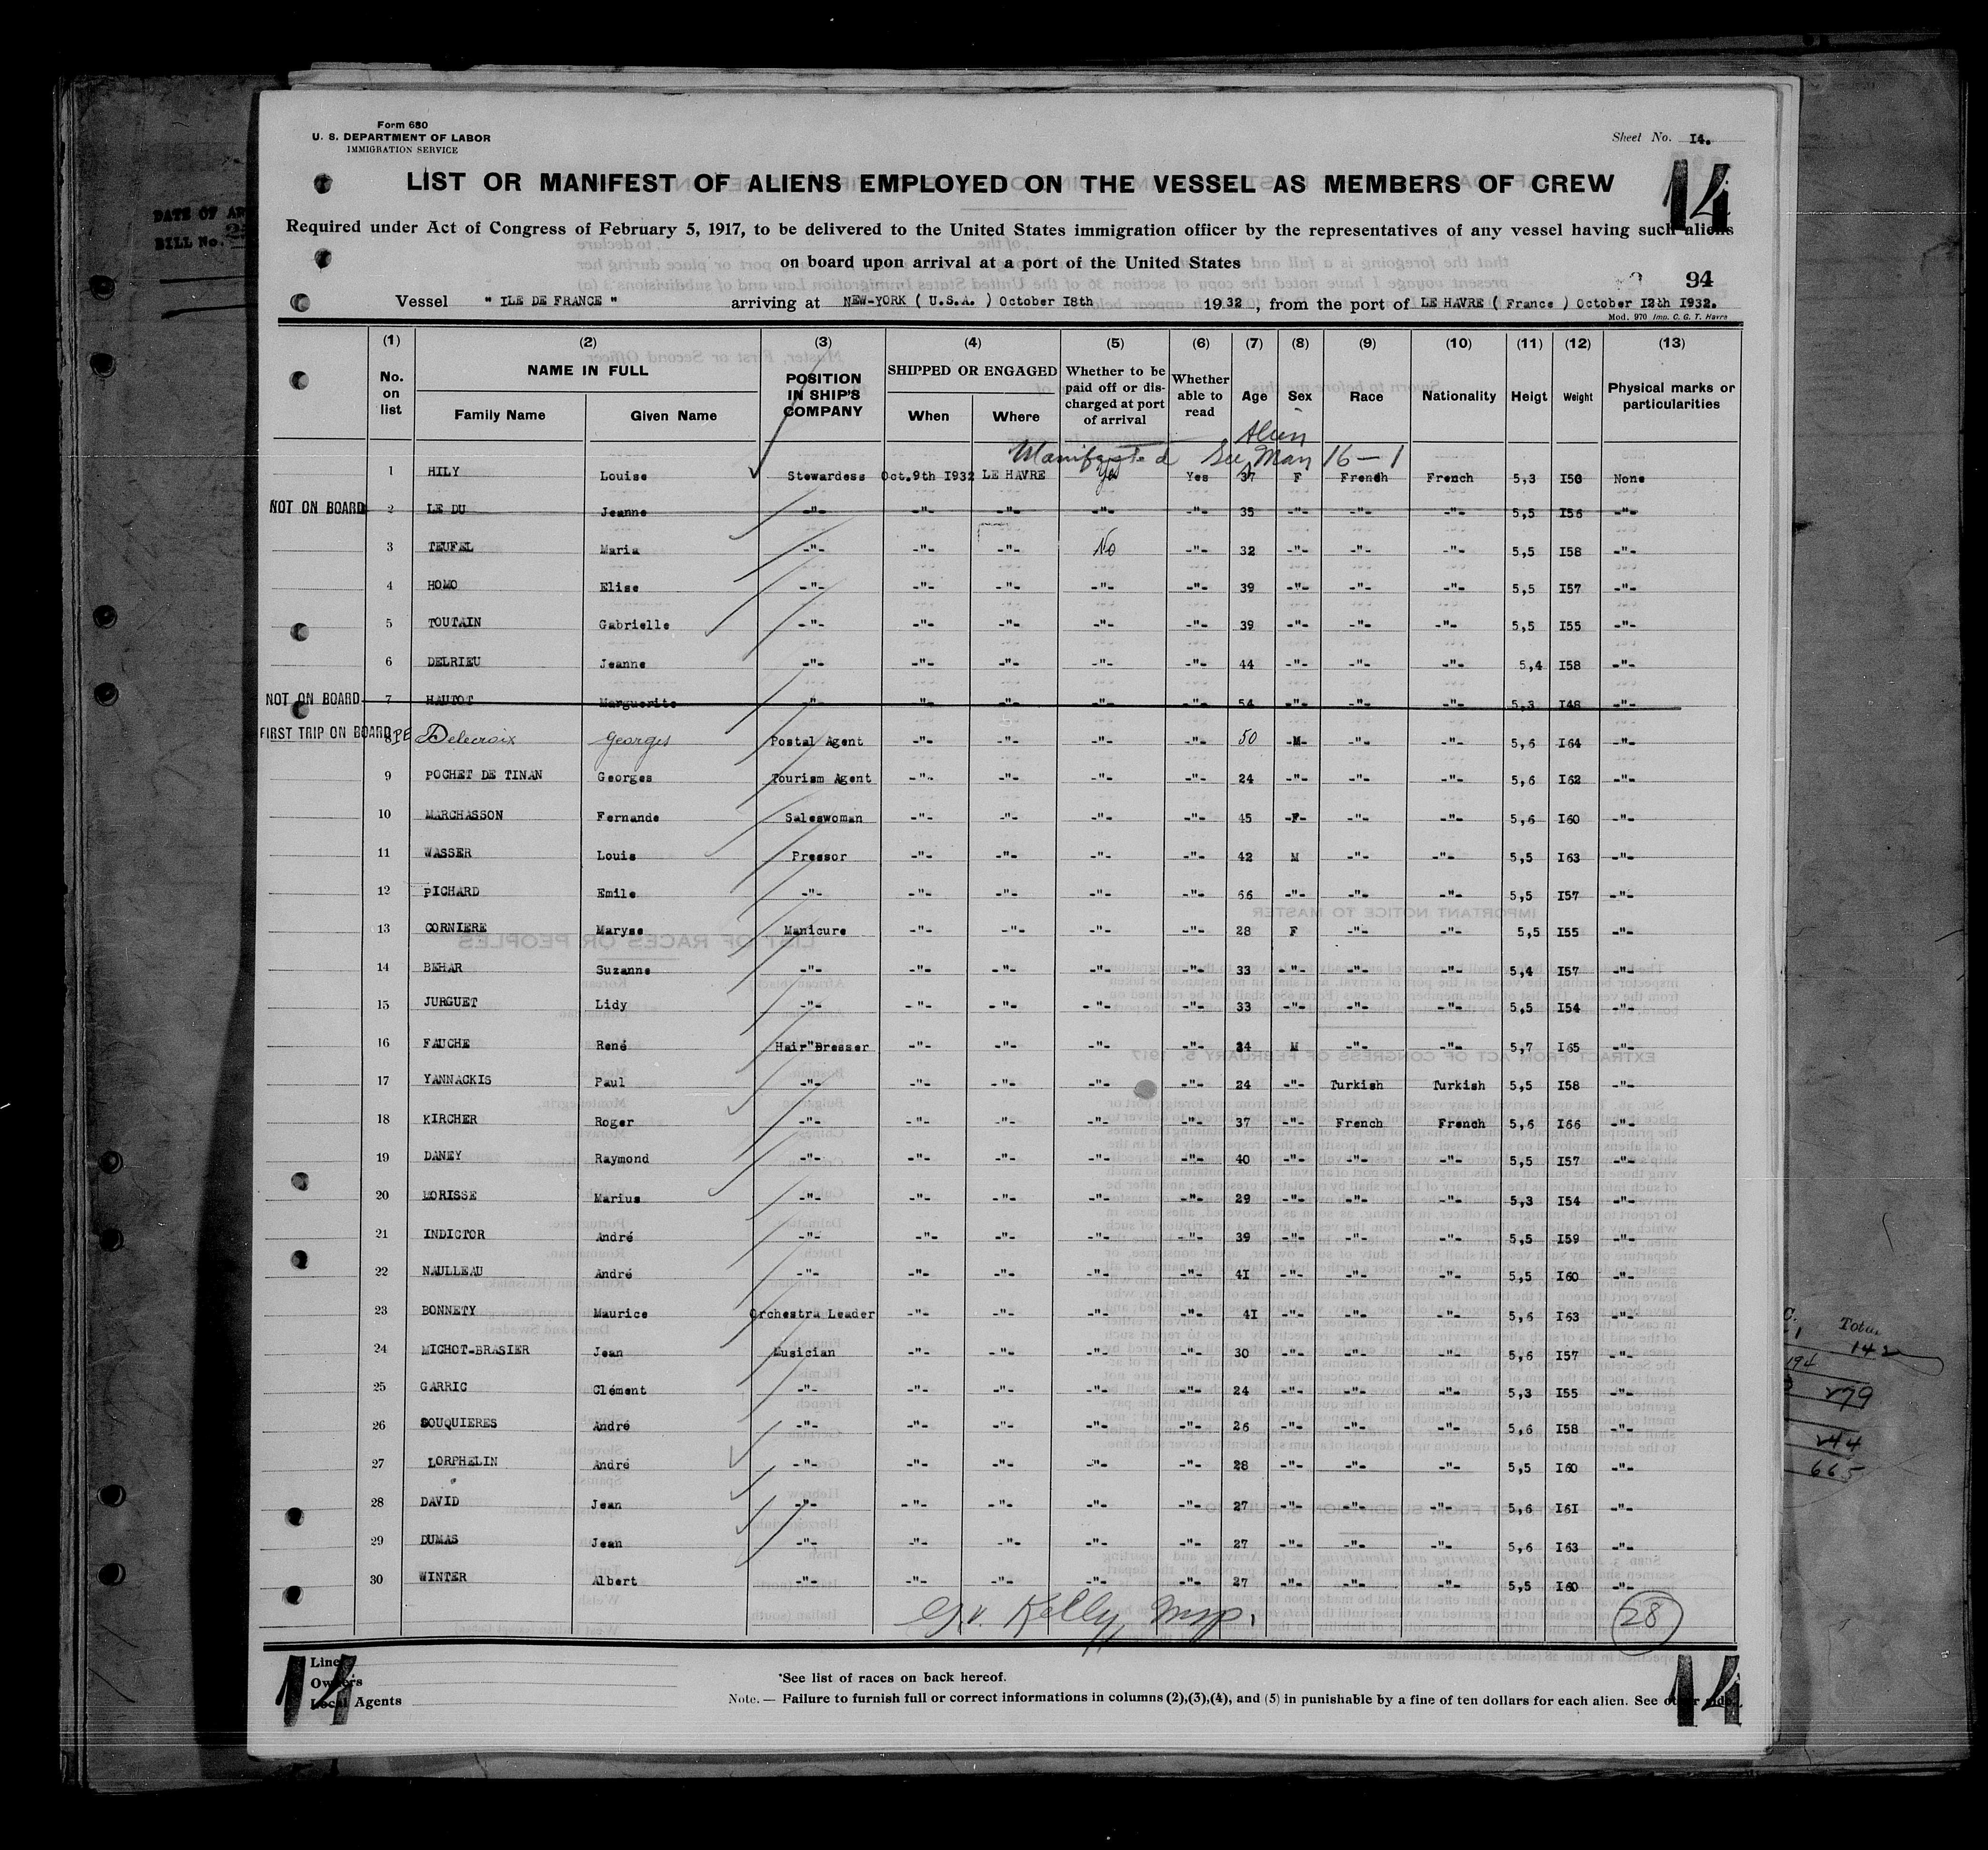 Form 680
U. S. DEPARTMENT OF LABOR
IMMIGRATION SERVICE
Sheet No. I4.
14
LIST OR MANIFEST OF ALIENS EMPLOYED ON THE VESSEL AS MEMBERS OF CREW
Required under Act of Congress of February 5, 1917, to be delivered to the United States immigration officer by the representatives of any vessel having such aliens
on board upon arrival at a port of the United States
94
Vessel " ILE DE FRANCE " arriving at NEW-YORK ( U.S.A. ) October I8th 1932, from the port of LE HAVRE ( France ) October I2th I932.
Mod. 970 Imp. C. G. T. Havre
(1) (2) (3) (4) (5) (6) (7) (8) (9) (10) (11) (12) (13)
No. on list NAME IN FULL Family Name Given Name POSITION IN SHIP'S COMPANY SHIPPED OR ENGAGED When Where Whether to be paid off or discharged at port of arrival Whether able to read Age Sex Race Nationality Heigt Weight Physical marks or particularities
Manifested Alien See Man 16-1
1 HILY Louise Stewardess Oct.9th I932 LE HAVRE Yes Yes 37 F French French 5,3 I50 None
NOT ON BOARD 2 LE DU Jeanne -"- -"- -"- -"- -"- 35 -"- -"- -"- 5,5 I56 -"-
3 TEUFEL Maria -"- -"- -"- No -"- 32 -"- -"- -"- 5,5 I58 -"-
4 HOMO Elise -"- -"- -"- -"- -"- 39 -"- -"- -"- 5,5 I57 -"-
5 TOUTAIN Gabrielle -"- -"- -"- -"- -"- 39 -"- -"- -"- 5,5 I55 -"-
6 DELRIEU Jeanne -"- -"- -"- -"- -"- 44 -"- -"- -"- 5,4 I58 -"-
NOT ON BOARD 7 HAUTOT Marguerite -"- -"- -"- -"- -"- 54 -"- -"- -"- 5,3 I48 -"-
FIRST TRIP ON BOARD 8 Delecroix Georges Postal Agent -"- -"- -"- -"- 50 -M- -"- -"- 5,6 I64 -"-
9 POCHET DE TINAN Georges Tourism Agent -"- -"- -"- -"- 24 -"- -"- -"- 5,6 I62 -"-
10 MARCHASSON Fernande Saleswoman -"- -"- -"- -"- 45 -F- -"- -"- 5,6 I60 -"-
11 WASSER Louis Pressor -"- -"- -"- -"- 42 M -"- -"- 5,5 I63 -"-
12 PICHARD Emile -"- -"- -"- -"- -"- 66 -"- -"- -"- 5,5 I57 -"-
13 CORNIERE Maryse Manicure -"- -"- -"- -"- 28 F -"- -"- 5,5 I55 -"-
14 BEHAR Suzanne -"- -"- -"- -"- -"- 33 -"- -"- -"- 5,4 I57 -"-
15 JURGUET Lidy -"- -"- -"- -"- -"- 33 -"- -"- -"- 5,5 I54 -"-
16 FAUCHE René Hair Dresser -"- -"- -"- -"- 24 M -"- -"- 5,7 I65 -"-
17 YANNACKIS Paul -"- -"- -"- -"- -"- 24 -"- Turkish Turkish 5,5 I58 -"-
18 KIRCHER Roger -"- -"- -"- -"- -"- 37 -"- French French 5,6 I66 -"-
19 DANEY Raymond -"- -"- -"- -"- -"- 40 -"- -"- -"- 5,5 I57 -"-
20 MORISSE Marius -"- -"- -"- -"- -"- 29 -"- -"- -"- 5,3 I54 -"-
21 INDICTOR André -"- -"- -"- -"- -"- 39 -"- -"- -"- 5,5 I59 -"-
22 NAULLEAU André -"- -"- -"- -"- -"- 4I -"- -"- -"- 5,5 I60 -"-
23 BONNETY Maurice Orchestra Leader -"- -"- -"- -"- 4I -"- -"- -"- 5,6 I63 -"-
24 MICHOT-BRASIER Jean Musician -"- -"- -"- -"- 30 -"- -"- -"- 5,6 I57 -"-
25 GARRIC Clément -"- -"- -"- -"- -"- 24 -"- -"- -"- 5,3 I55 -"-
26 SOUQUIERES André -"- -"- -"- -"- -"- 26 -"- -"- -"- 5,6 I58 -"-
27 LORPHELIN André -"- -"- -"- -"- -"- 28 -"- -"- -"- 5,5 I60 -"-
28 DAVID Jean -"- -"- -"- -"- -"- 27 -"- -"- -"- 5,6 I6I -"-
29 DUMAS Jean -"- -"- -"- -"- -"- 27 -"- -"- -"- 5,6 I63 -"-
30 WINTER Albert -"- -"- -"- -"- -"- 27 -"- -"- -"- 5,5 I60 -"-
G.V. Kelly, Insp. 28
Line
Owners
Local Agents
14
*See list of races on back hereof.
Note. — Failure to furnish full or correct informations in columns (2),(3),(4), and (5) in punishable by a fine of ten dollars for each alien. See other side.
14
DATE OF AR
BILL No.
Total
142
194
279
244
665